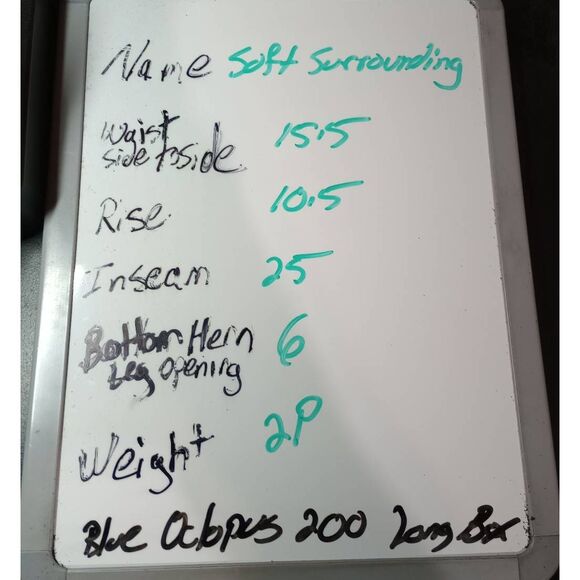 Name Soft Surrounding
Waist
side to side 15.5
Rise 10.5
Inseam 25
Bottom Hem 6
Leg opening
Weight 2P
Blue Octopus 200 Long Box